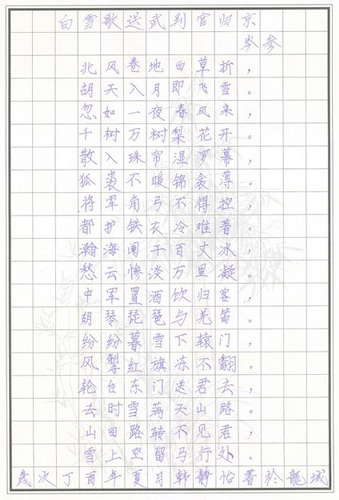 白雪歌送武判官归京
岑参
北风卷地白草折，
胡天八月即飞雪。
忽如一夜春风来，
千树万树梨花开。
散入珠帘湿罗幕，
狐裘不暖锦衾薄。
将军角弓不得控，
都护铁衣冷难着。
瀚海阑干百丈冰，
愁云惨淡万里凝。
中军置酒饮归客，
胡琴琵琶与羌笛。
纷纷暮雪下辕门，
风掣红旗冻不翻。
轮台东门送君去，
去时雪满天山路。
山回路转不见君，
雪上空留马行处。
岁次丁酉年夏月韩静怡書於龍城